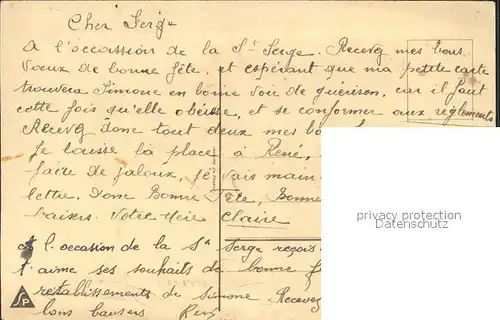 Cher Serge
A l'occassion de la St Serge. Recevez mes bons
vœux de bonne fête, et espérant que ma petite carte
trouvera Simone en bonne voie de guérison, car il faut
cette fois qu'elle obéisse, et se conformer aux règlements
Recevez donc tout deux mes
Je laisse la place à René,
faire de jaloux, je vais main
lettre. Donc Bonne Fête, Bonne
baisers. Votre Claire
privacy protection
Datenschutz
A l'occasion de la St Serge reçois
t'aime ses souhaits de bonne
retablissements de Simone Recevez
bons baisers